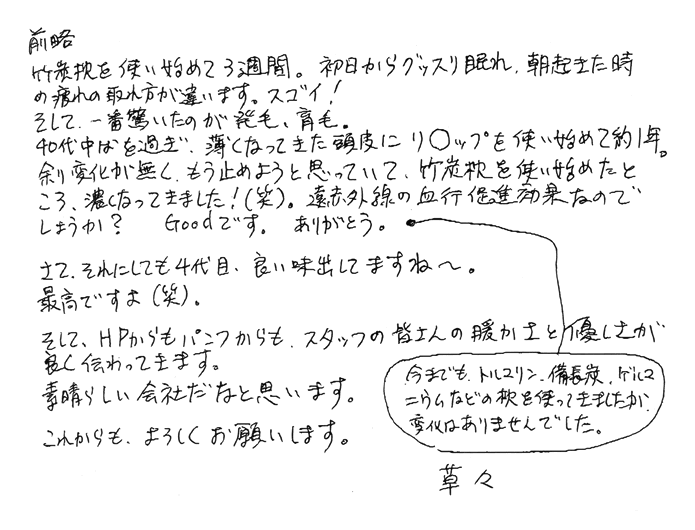 前略
竹炭枕を使い始めて3週間。初日からグッスリ眠れ、朝起きた時
の疲れの取れ方が違います。スゴイ!
そして、一番驚いたのが発毛、育毛。
40代中ばを過ぎ、薄くなってきた頭皮にリ〇ップを使い始めて約1年。
余り変化が無く、もう止めようと思っていて、竹炭枕を使い始めたと
ころ、濃くなってきました!(笑)。遠赤外線の血行促進効果なので
しょうか? Goodです。ありがとう。
さて、それにしても4代目、良い味出してますね〜。
最高ですよ(笑)。
そして、HPからもパンフからも、スタッフの皆さんの暖かさと優しさが
良く伝わってきます。
素晴らしい会社だなと思います。
これからも、よろしくお願いします。
今までも、トルマリン、備長炭、ゲルマ
ニウムなどの枕を使ってきましたが、
変化はありませんでした。
草々